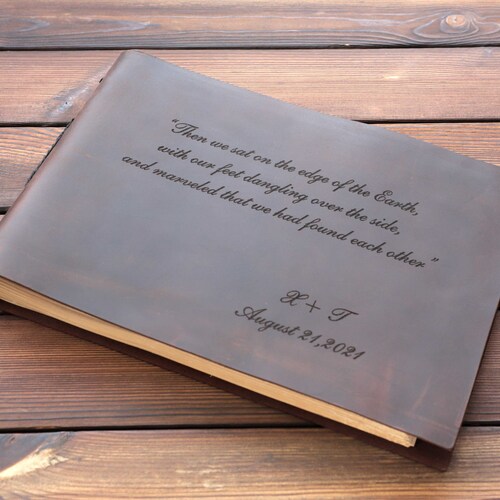 “Then we sat on the edge of the Earth,
with our feet dangling over the side,
and marveled that we had found each other”
X + T
August 21,2021